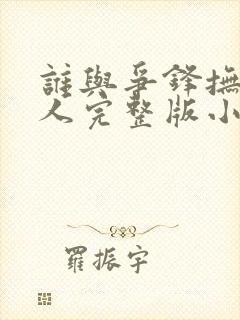 誰與爭鋒撫
人完整版小
羅振宇